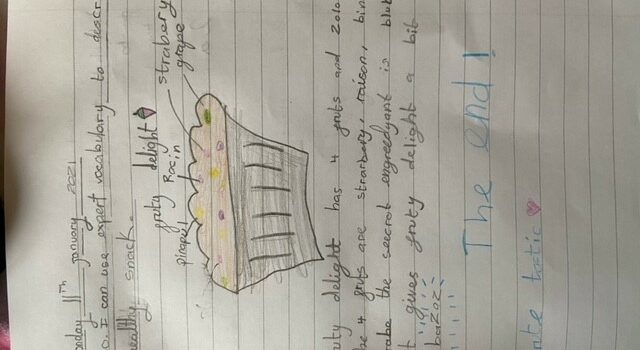 onday 11th january 2021
o. I can use expert vocabulary to descr
ealthy snack.
fruty delight
strabery
grape
Racin
pinapul
uty delight has 4 fruts and 20lo
he 4 fruts are strarbary, raison, bin
rabe the seecrot engreedyant is blub
t gives fruty delight a bit
bazoz
The end!
nte tastic